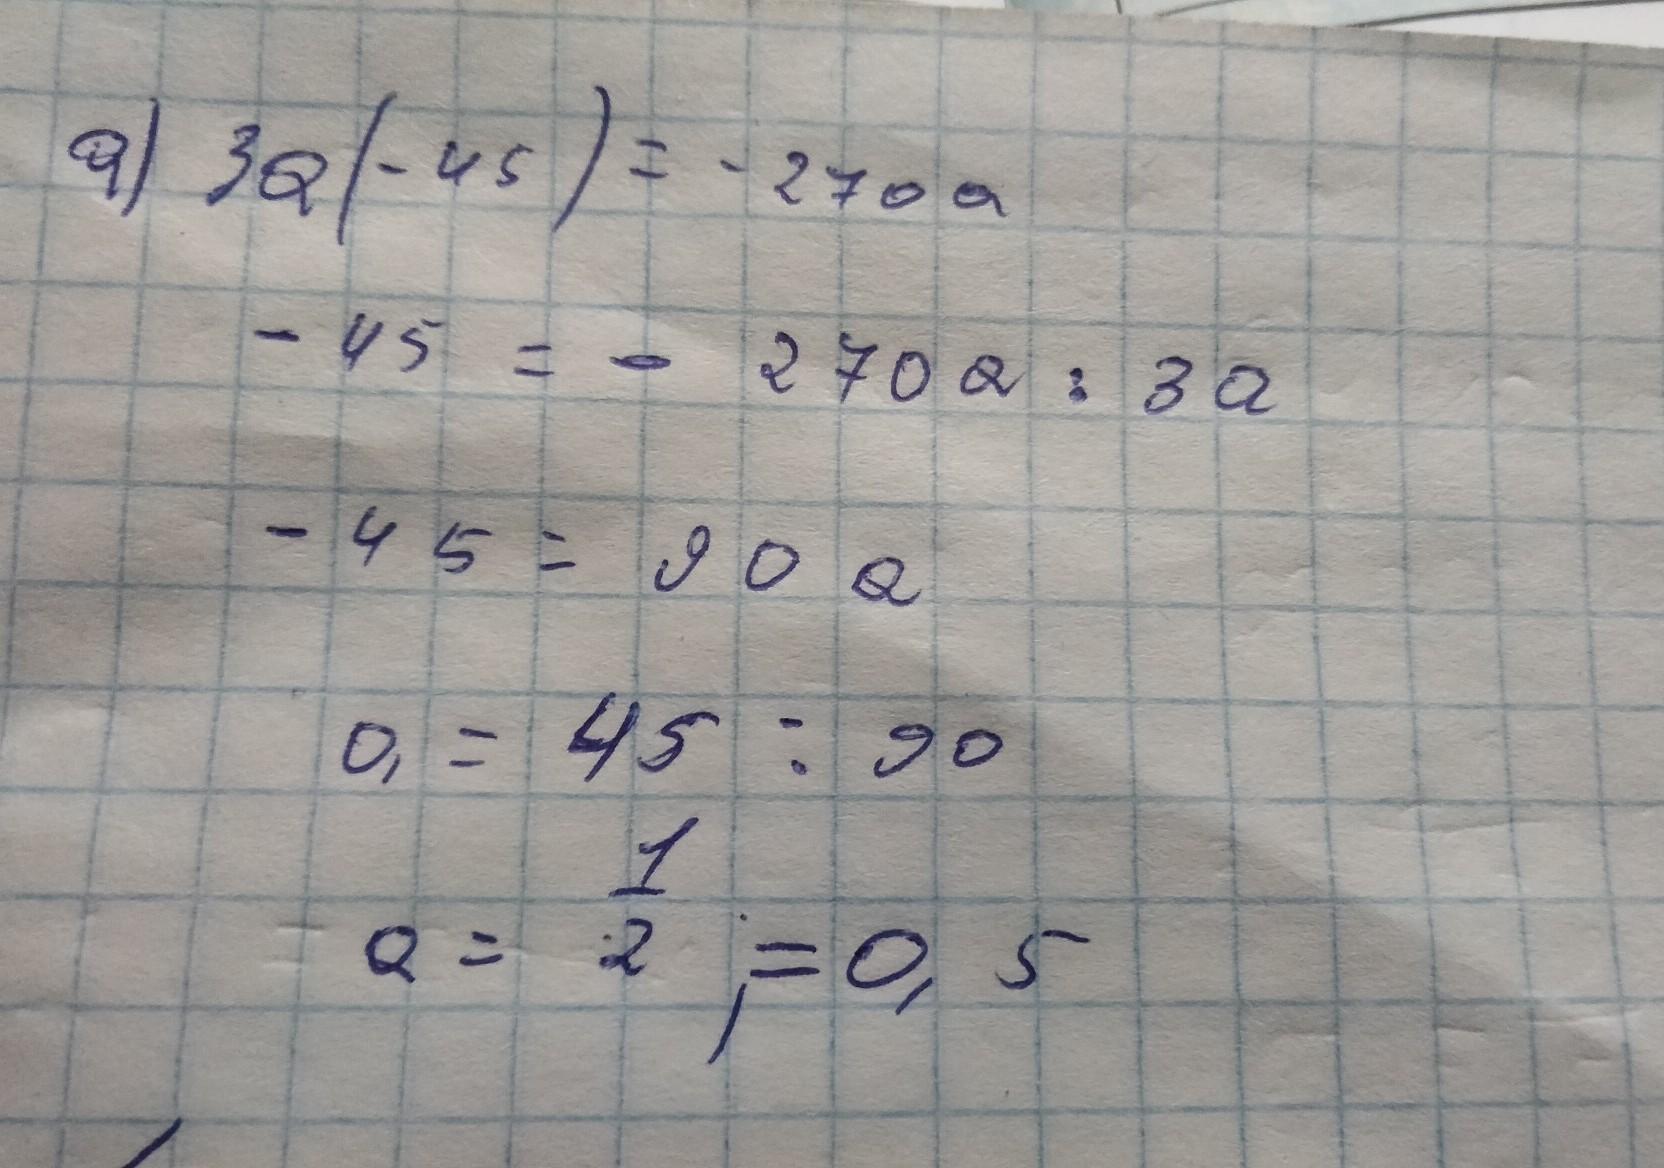 а) 3a(-45) = -270a
-45 = - 270a : 3a
-45 = 90a
a = 45 : 90
a = 1/2 ; = 0,5